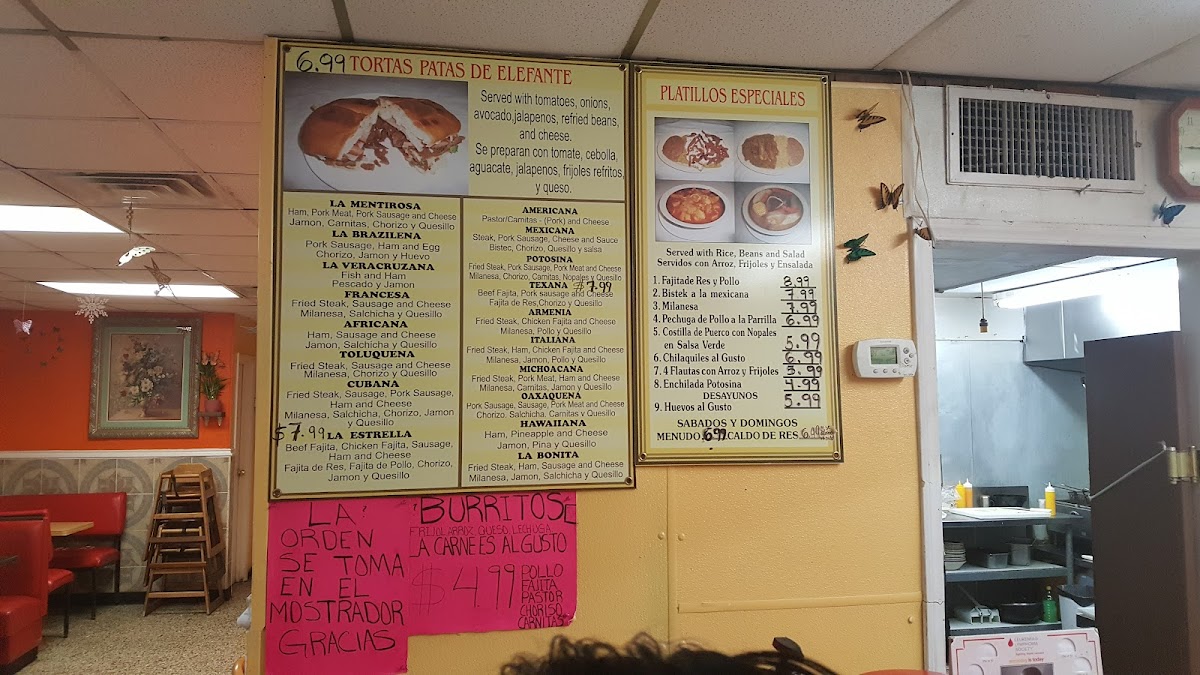 6.99 TORTAS PATAS DE ELEFANTE
Served with tomatoes, onions,
avocado,jalapenos, refried beans,
and cheese.
Se preparan con tomate, cebolla,
aguacate, jalapenos, frijoles refritos,
y queso.
LA MENTIROSA
Ham, Pork Meat, Pork Sausage and Cheese
Jamon, Carnitas, Chorizo y Quesillo
LA BRAZILENA
Pork Sausage, Ham and Egg
Chorizo, Jamon y Huevo
LA VERACRUZANA
Fish and Ham
Pescado y Jamon
FRANCESA
Fried Steak, Sausage and Cheese
Milanesa, Salchicha y Quesillo
AFRICANA
Ham, Sausage and Cheese
Jamon, Salchicha y Quesillo
TOLUQUENA
Fried Steak, Sausage and Cheese
Milanesa, Chorizo y Quesillo
CUBANA
Fried Steak, Sausage, Pork Sausage,
Ham and Cheese
Milanesa, Salchicha, Chorizo, Jamon
y Quesillo
$7.99 LA ESTRELLA
Beef Fajita, Chicken Fajita, Sausage,
Ham and Cheese
Fajita de Res, Fajita de Pollo, Chorizo,
Jamon y Quesillo
AMERICANA
Pastor/Carnitas - (Pork) and Cheese
MEXICANA
Steak, Pork Sausage, Cheese and Sauce
Bistec, Chorizo, Quesillo y salsa
POTOSINA
Fried Steak, Pork Sausage, Pork Meat and Cheese
Milanesa, Chorizo, Carnitas, Nopales y Quesillo
TEXANA $7.99
Beef Fajita, Pork sausage and Cheese
Fajita de Res,Chorizo y Quesillo
ARMENIA
Fried Steak, Chicken Fajita and Cheese
Milanesa, Pollo y Quesillo
ITALIANA
Fried Steak, Ham, Chicken Fajita and Cheese
Milanesa, Jamon, Pollo y Quesillo
MICHOACANA
Fried Steak, Pork Meat, Ham and Cheese
Milanesa, Carnitas, Jamon y Quesillo
OAXAQUENA
Pork Sausage, Sausage, Pork Meat and Cheese
Chorizo, Salchicha, Carnitas y Quesillo
HAWAIIANA
Ham, Pineapple and Cheese
Jamon, Pina y Quesillo
LA BONITA
Fried Steak, Ham, Sausage and Cheese
Milanesa, Jamon, Salchicha y Quesillo
PLATILLOS ESPECIALES
Served with Rice, Beans and Salad
Servidos con Arroz, Frijoles y Ensalada
1. Fajitade Res y Pollo 8.99
2. Bistek a la mexicana 7.99
3. Milanesa 7.99
4. Pechuga de Pollo a la Parrilla 6.99
5. Costilla de Puerco con Nopales
en Salsa Verde 5.99
6. Chilaquiles al Gusto 6.99
7. 4 Flautas con Arroz y Frijoles 3.99
8. Enchilada Potosina 4.99
DESAYUNOS
9. Huevos al Gusto 5.99
SABADOS Y DOMINGOS
MENUDO 6.99 CALDO DE RES
LA
ORDEN
SE TOMA
EN EL
MOSTRADOR
GRACIAS
BURRITOS
FRIJOL ARROZ QUESO LECHUGA
LA CARNE ES AL GUSTO
$4.99
POLLO
FAJITA
PASTOR
CHORISO
CARNITAS